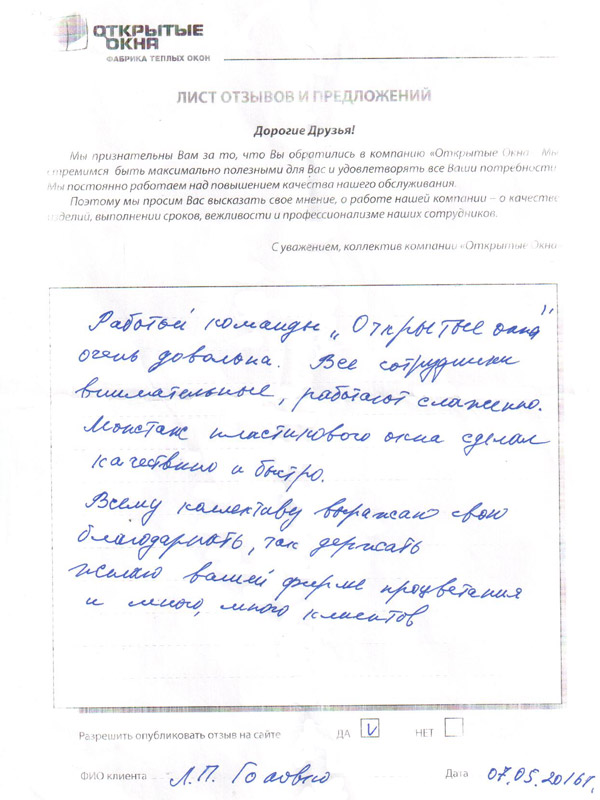 ОТКРЫТЫЕ
ОКНА
ФАБРИКА ТЕПЛЫХ ОКОН
ЛИСТ ОТЗЫВОВ И ПРЕДЛОЖЕНИЙ
Дорогие Друзья!
Мы признательны Вам за то, что Вы обратились в компанию «Открытые Окна Мы
стремимся быть максимально полезными для Вас и удовлетворять все Ваши потребности
Мы постоянно работаем над повышением качества нашего обслуживания.
Поэтому мы просим Вас высказать свое мнение, о работе нашей компании – о качестве
изделий, выполнении сроков, вежливости и профессионализме наших сотрудников.
С уважением, коллектив компании «Открытые Окна
Работой команды „Открытые окна"
очень довольна. Все сотрудники
внимательные, работают слаженно.
Монтаж пластикового окна сделал
качествино и быстро.
Всему коллективу выражаю свою
благодарность, так держать
желаю вашей фирме процветания
и много, много клиентов
Разрешить опубликовать отзыв на сайте ДА V НЕТ
ФИО клиента Л.П. Дата 07.05.2016г.